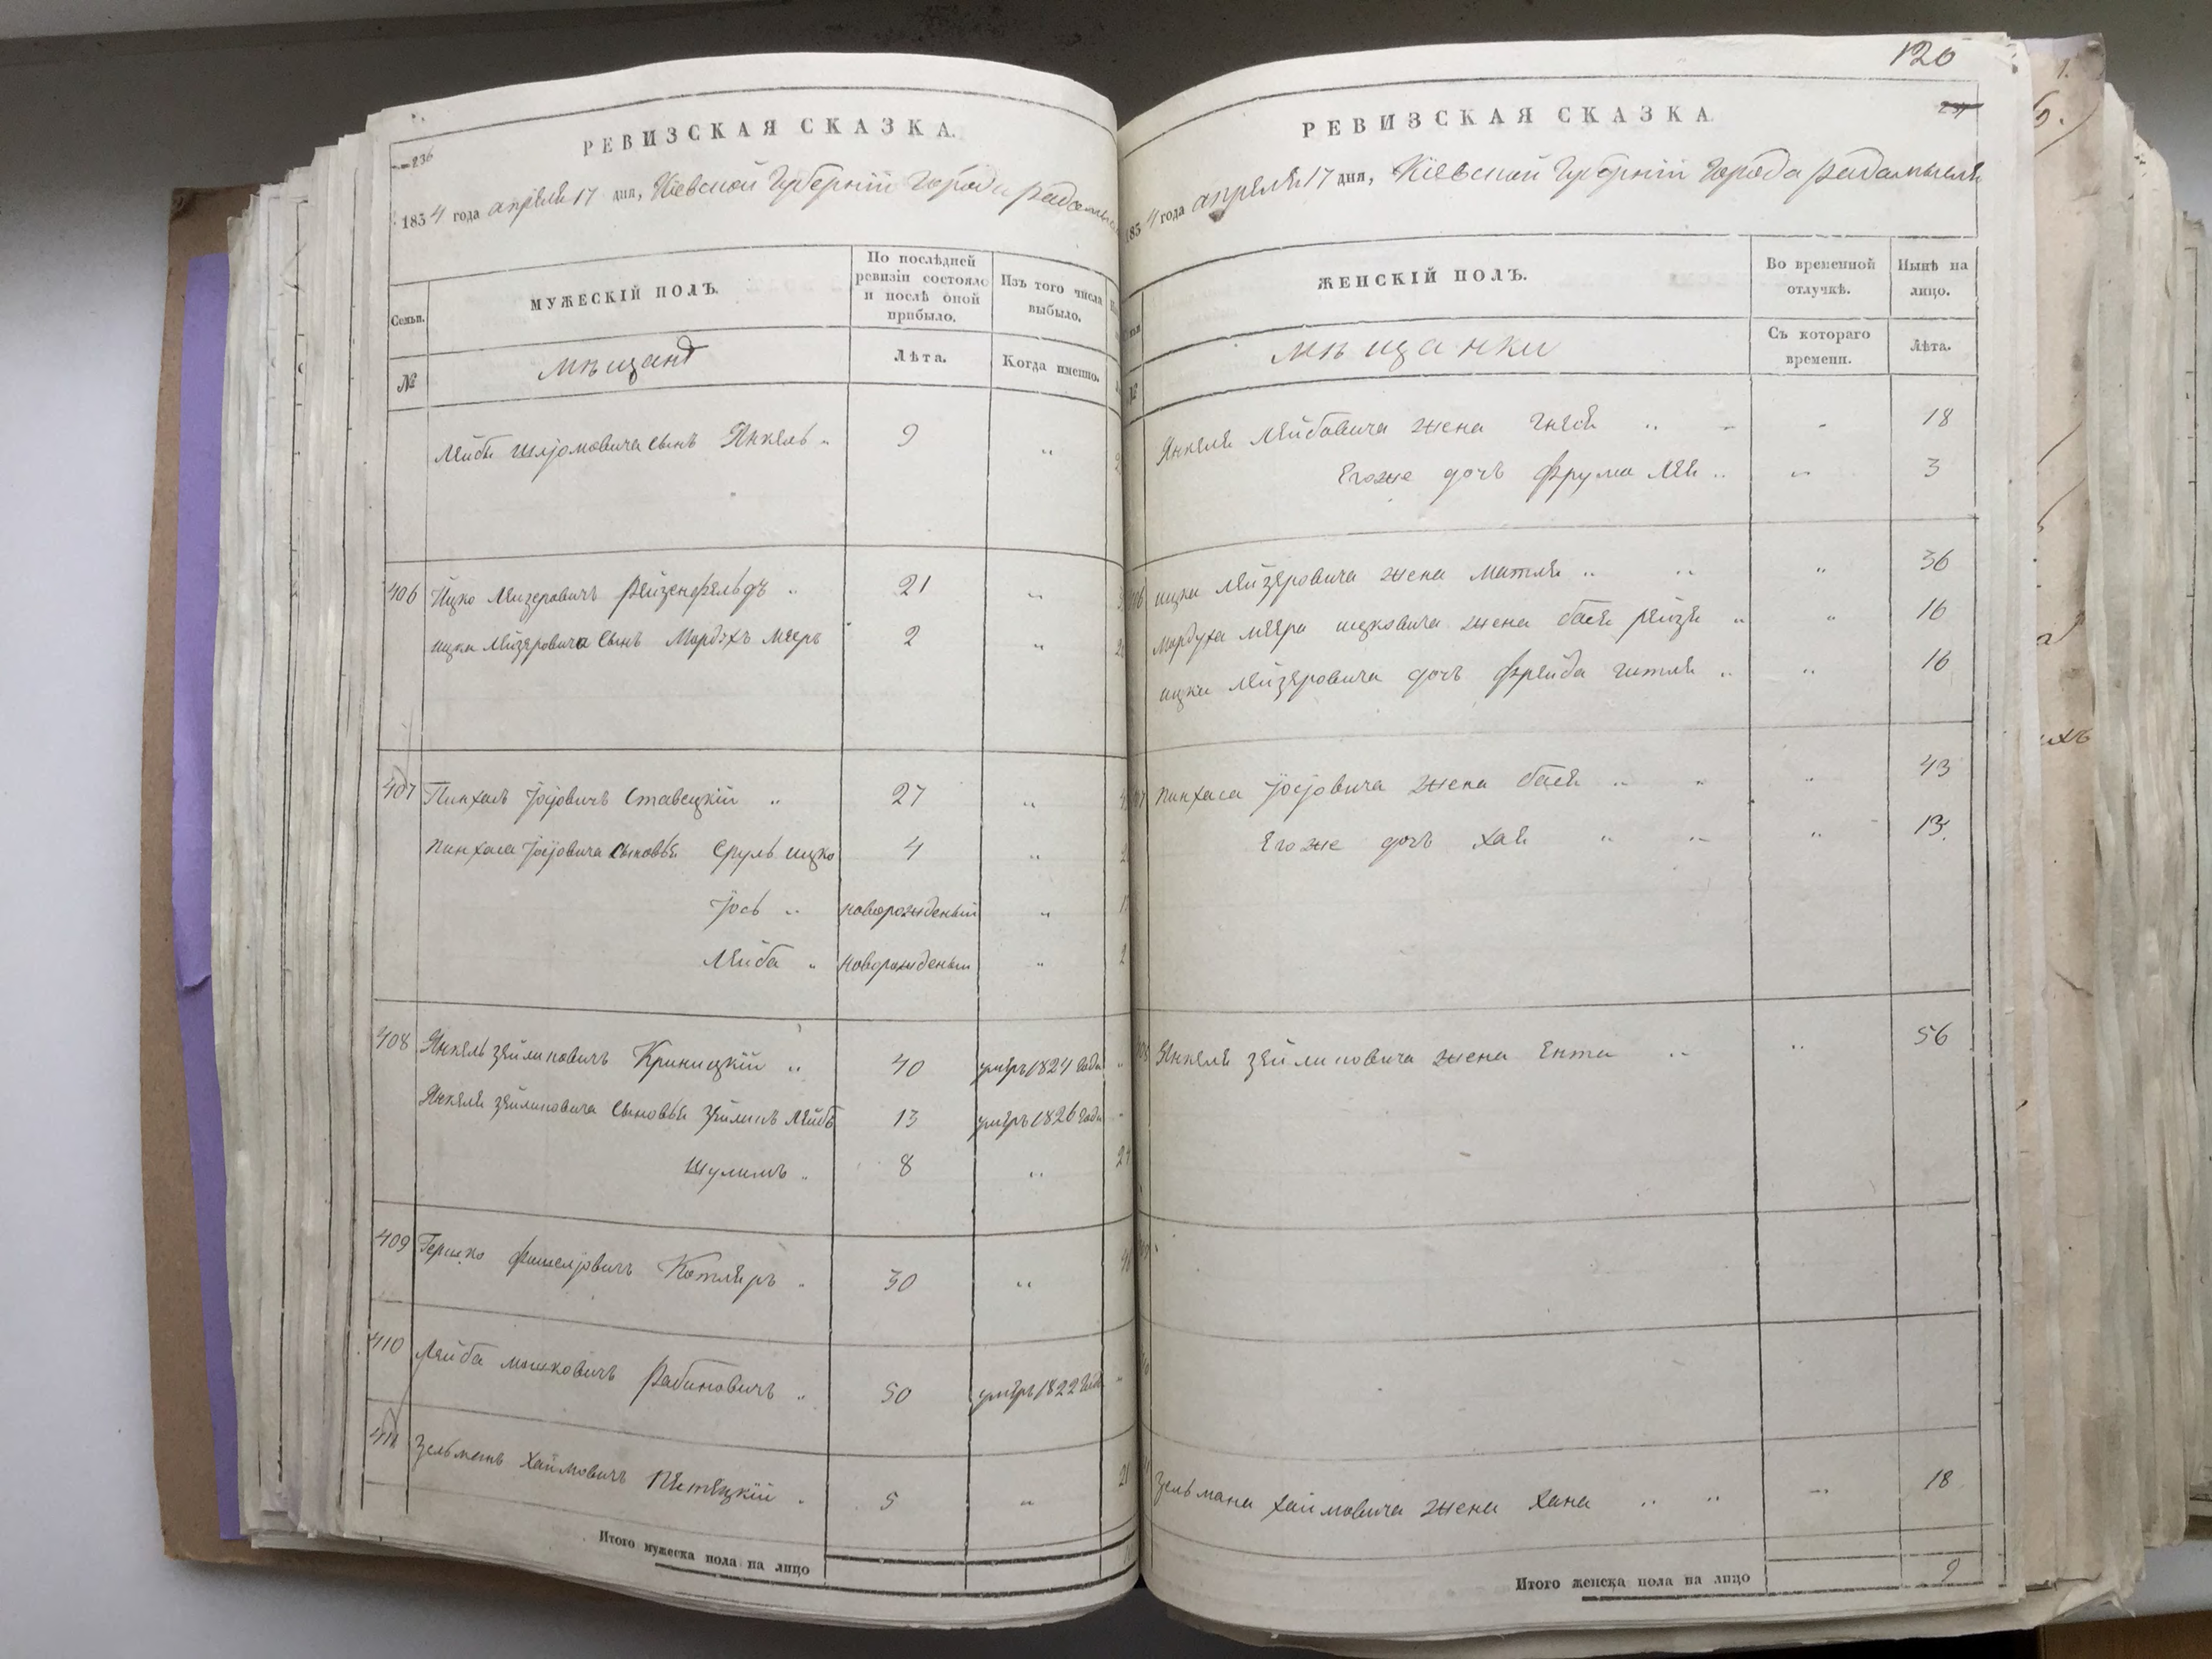 236
РЕВИЗСКАЯ СКАЗКА.
1834 года апреля 17 дня, Кіевской Губерніи Города Радомысля
Семьи.
МУЖЕСКІЙ ПОЛЪ.
По послѣдней ревизіи состояло и послѣ оной прибыло.
Изъ того числа выбыло.
№
мѣщанъ
Лѣта.
Когда именно.
Лейбы Шліомовича сынъ Янкель „ 9 „
406 Ицко Лейзеровичъ Рейзенфельдъ „ 21 „
ицки Лейзеровича сынъ Мордухъ Мееръ 2 „
407 Пинхасъ Іосіовичъ Ставецкій „ 27 „
Пинхаса Іосіовича сыновья Сруль ицко 4 „
Іось „ новорожденый „
Лейба „ новорожденый „
408 Янкель Зейликовичъ Криницкій „ 40 умеръ 1824 года „
Янкеля Зейликовича сыновья Зейликъ Лейбъ 13 умеръ 1826 года „
Шулимъ „ 8 „
409 Гершко Фишеліовичъ Котляръ „ 30 „
410 Лейба мошковичъ Рабиновичъ „ 50 умеръ 1822 года „
411 Зельманъ Хаимовичъ 5 „
Итого мужеска пола на лицо
120
РЕВИЗСКАЯ СКАЗКА
1834 года апреля 17 дня, Кіевской Губерніи Города Радомысля
ЖЕНСКІЙ ПОЛЪ.
Во временной отлучкѣ.
Нынѣ на лицо.
№
мѣщанки
Съ котораго времени.
Лѣта.
Янкеля Лейбовича жена Гнеся „ „ „ 18
Егоже дочь Фрума Лея „ „ 3
ицки Лейзеровича жена Матля „ „ „ 36
Мордуха Меера ицковича жена бася рейзя „ „ 16
ицки Лейзеровича дочь Фрейда гитля „ „ 16
Пинхаса Іосіовича жена бася „ „ „ 43
Егоже дочь Хая „ „ „ 13.
Янкеля Зейликовича жена Ента „ „ 56
Зельмана Хаимовича жена Хана „ „ „ 18
Итого женска пола на лицо 9